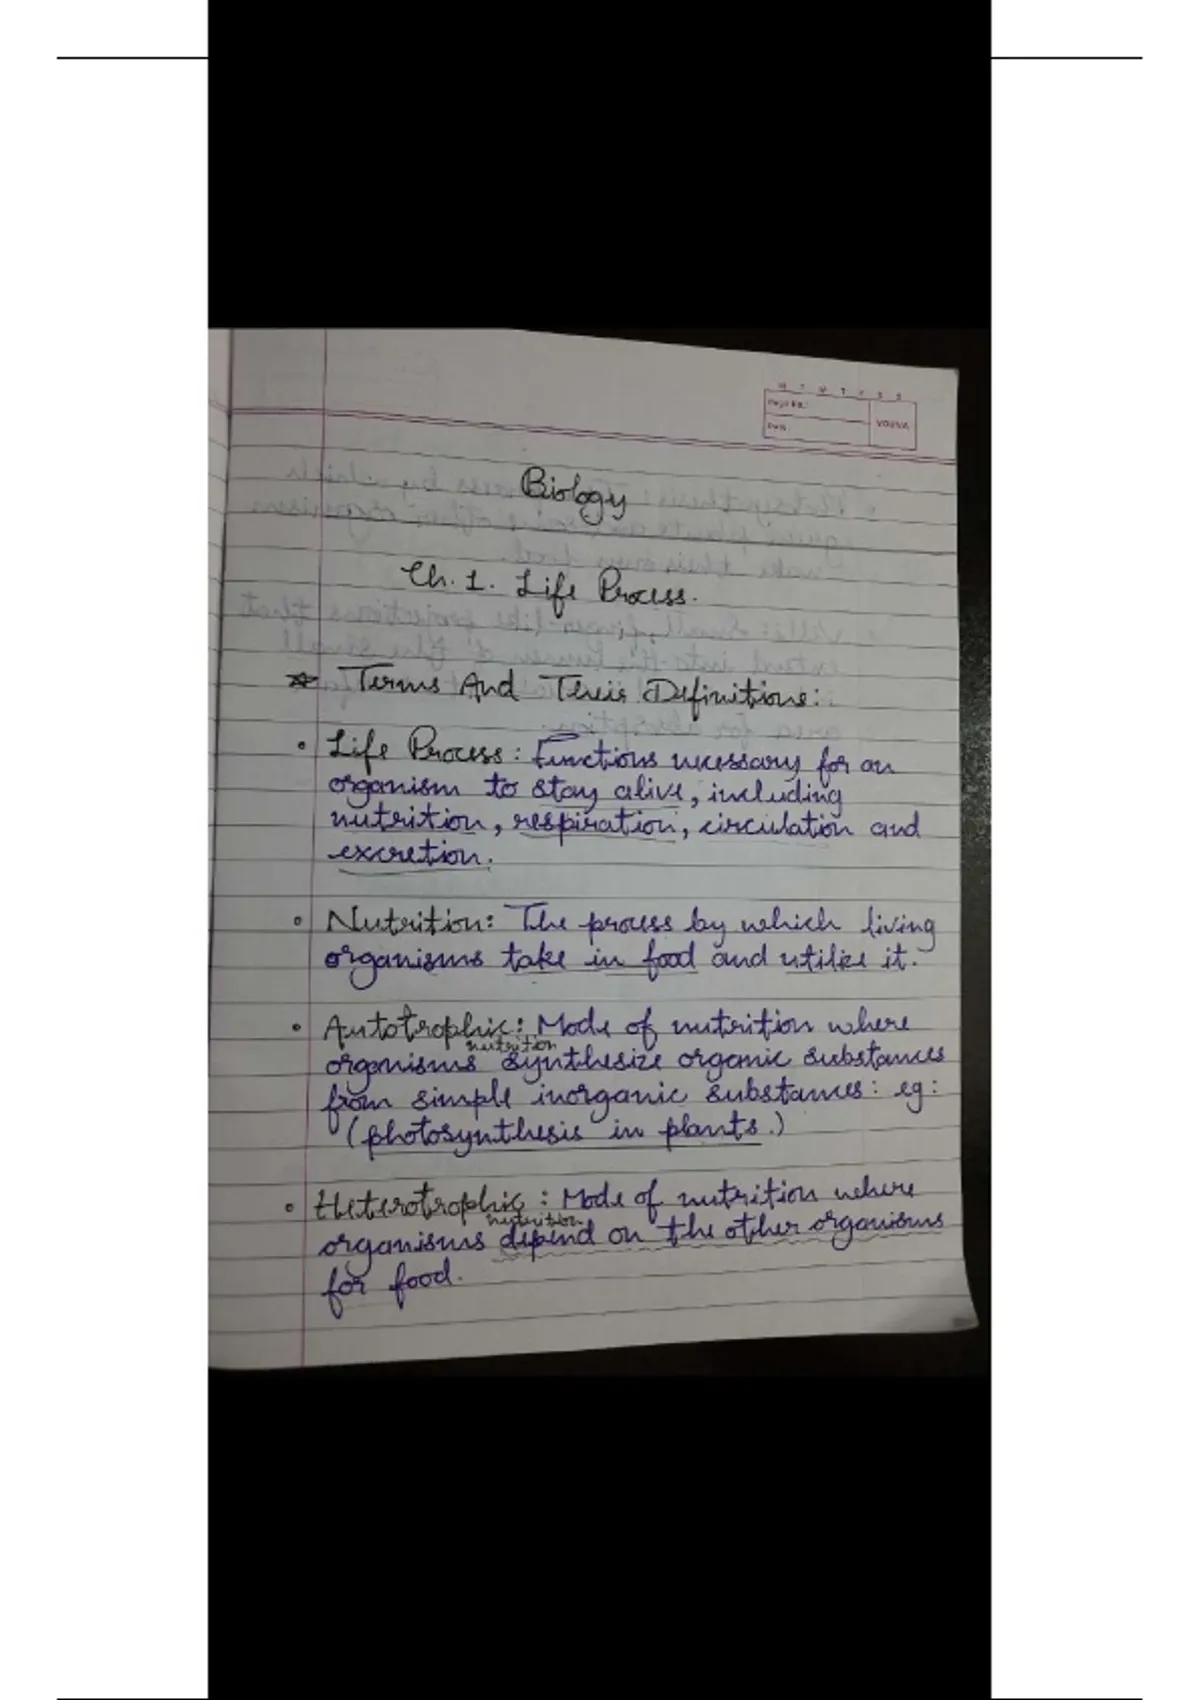 M T W T F S S
Page No.:
Date:
YOUVA
Biology
Ch. 1. Life Process.
Terms And Their Definitions:
• Life Process: Functions necessary for an
organism to stay alive, including
nutrition, respiration, circulation and
excretion.
• Nutrition: The process by which living
organisms take in food and utilize it.
• Autotrophic: Mode of nutrition where
nutrition
organisms synthesize organic substances
from simple inorganic substances: eg:
(photosynthesis in plants.)
• Heterotrophic: Mode of nutrition where
nutrition
organisms depend on the other organisms
for food.